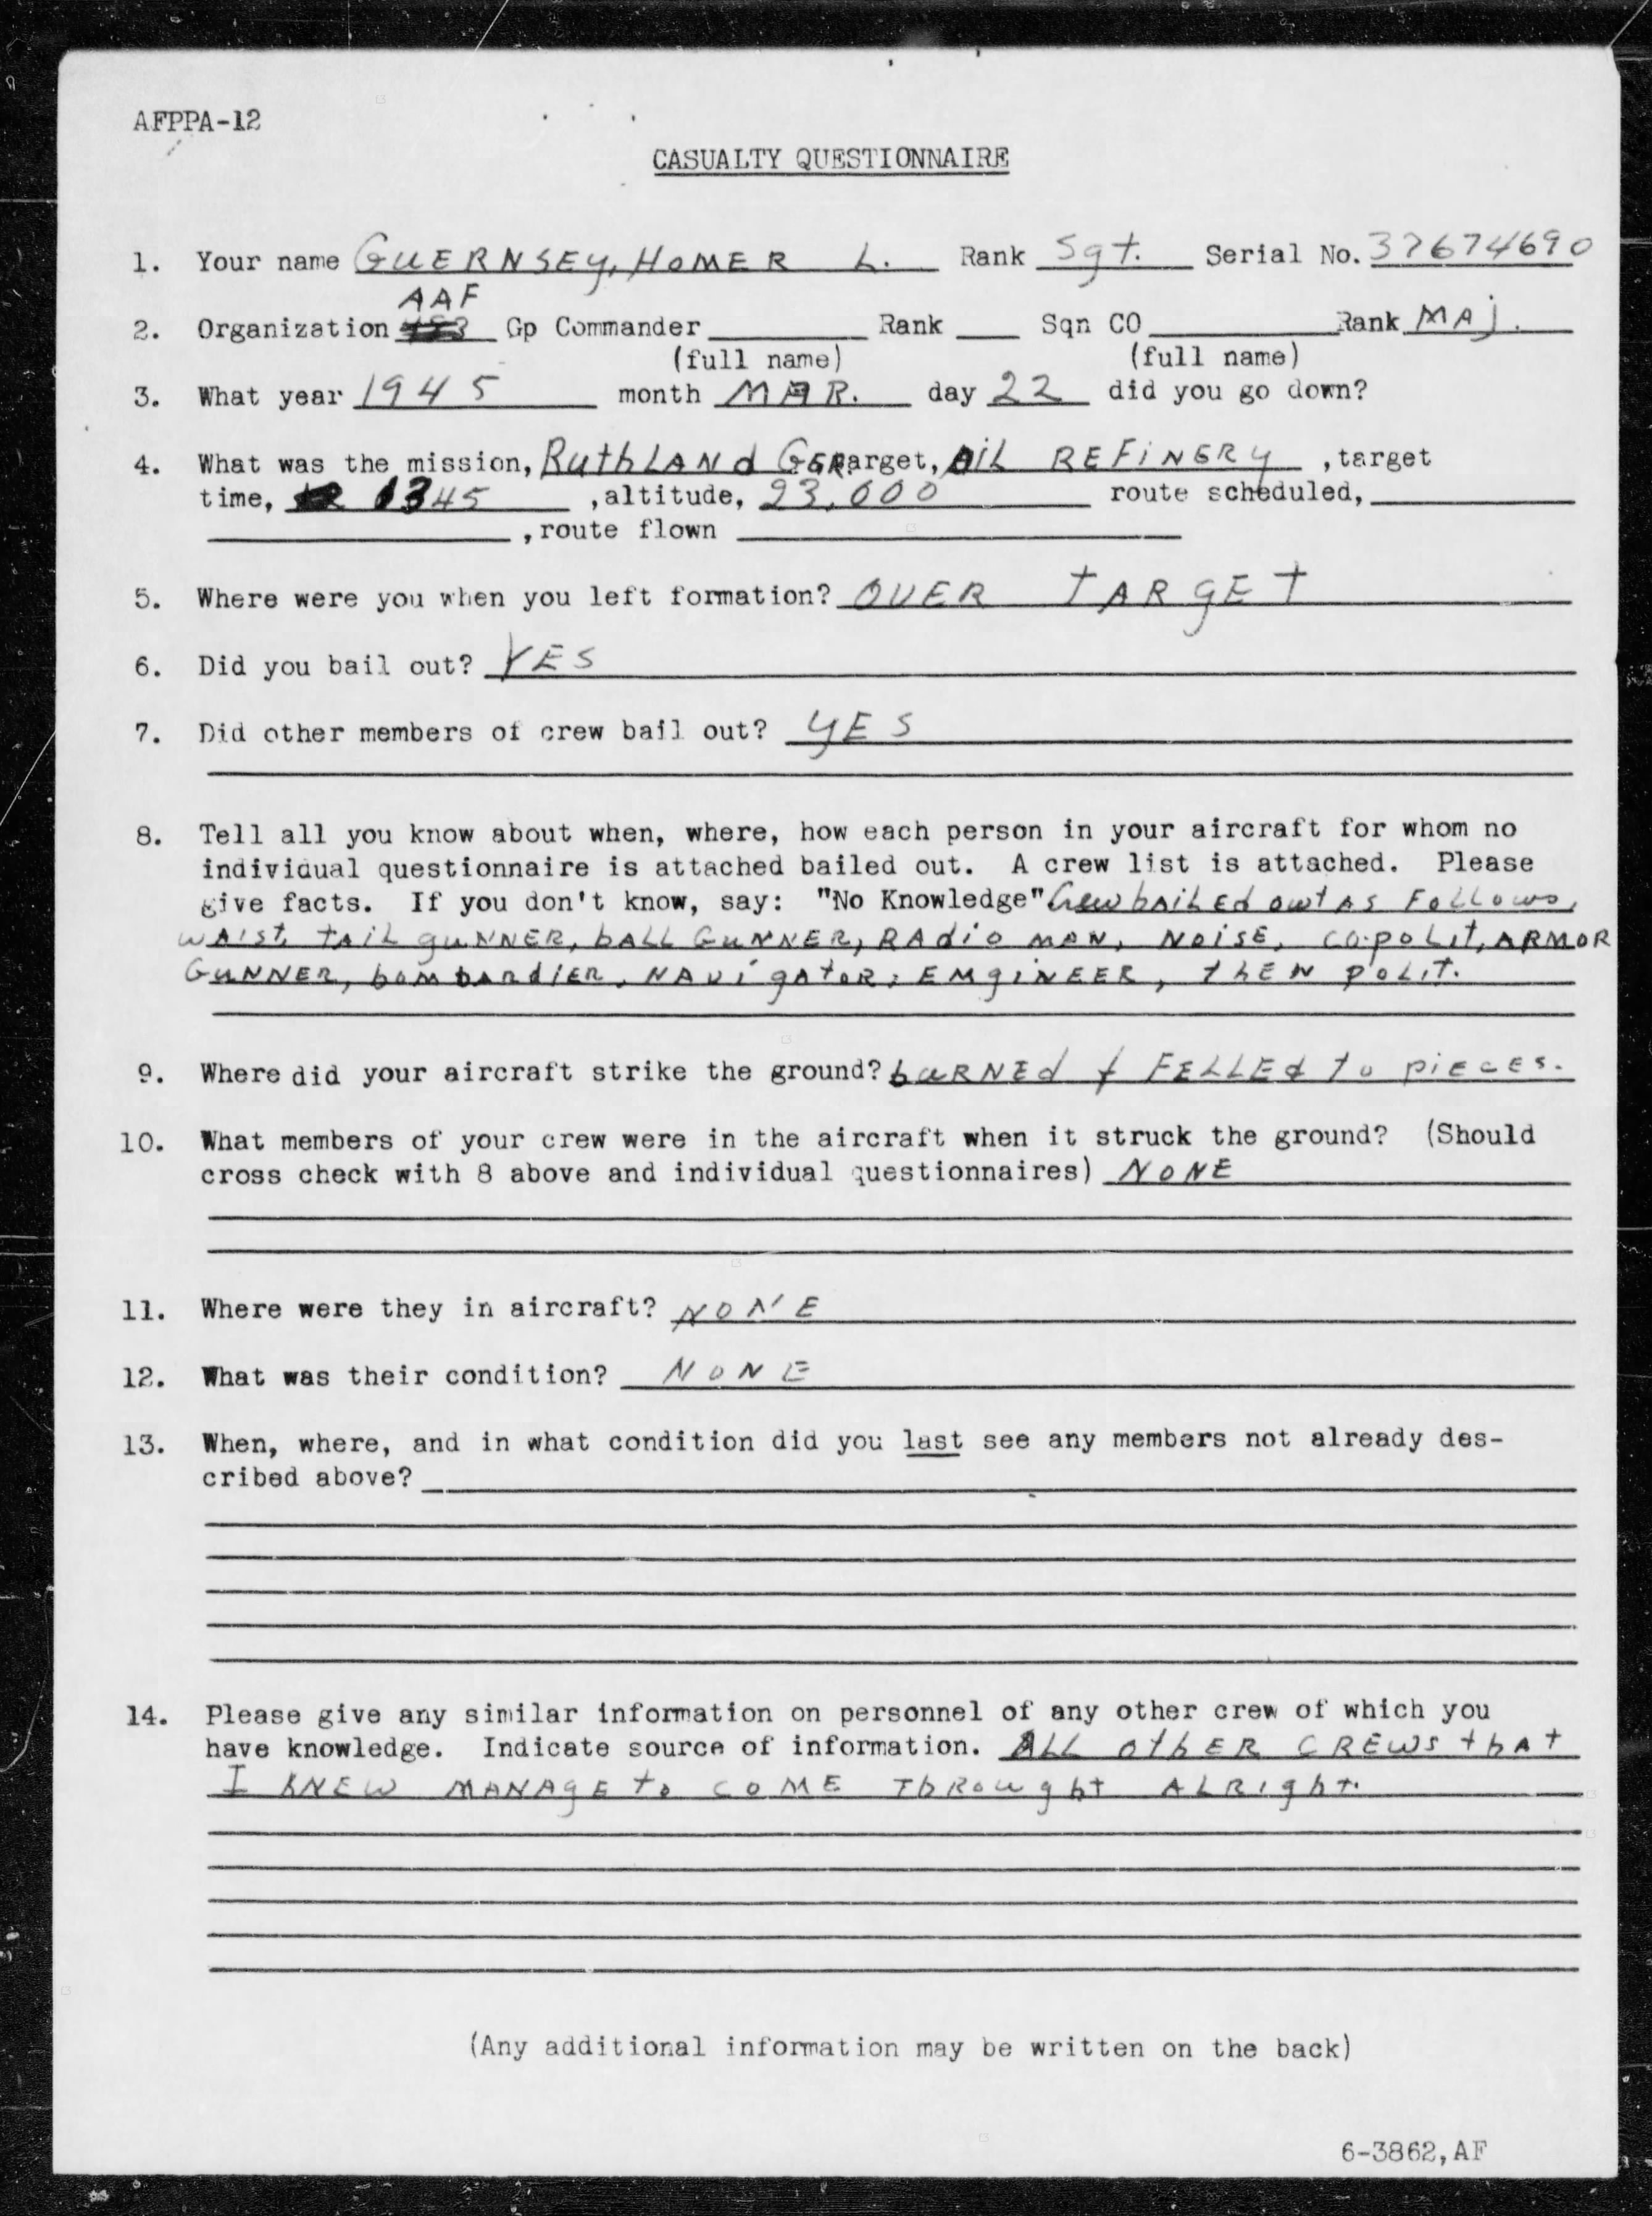 AFPPA-12
CASUALTY QUESTIONNAIRE
1. Your name GUERNSEY, HOMER L. Rank Sgt. Serial No. 37674690
AAF
2. Organization Gp Commander Rank Sqn CO Rank MAJ.
(full name) (full name)
3. What year 1945 month MAR. day 22 did you go down?
4. What was the mission, RuthLANd GER. target, OIL REFINERY , target
time, 1345 , altitude, 23,000 route scheduled,
, route flown
5. Where were you when you left formation? OVER TARGET
6. Did you bail out? YES
7. Did other members of crew bail out? YES
8. Tell all you know about when, where, how each person in your aircraft for whom no
individual questionnaire is attached bailed out. A crew list is attached. Please
give facts. If you don't know, say: "No Knowledge" Crew bAiLEd out AS FoLLows,
WAist, tAiL guNNER, bALL GuNNER, RAdio mAN, NOiSE, CO-poLit, ARMOR
GuNNER, bombardIER, NAVigAtoR, EMgiNEER, thEN poLit.
9. Where did your aircraft strike the ground? buRNEd & FELLEd to piECES.
10. What members of your crew were in the aircraft when it struck the ground? (Should
cross check with 8 above and individual questionnaires) NONE
11. Where were they in aircraft? NONE
12. What was their condition? NONE
13. When, where, and in what condition did you last see any members not already des-
cribed above?
14. Please give any similar information on personnel of any other crew of which you
have knowledge. Indicate source of information. ALL othER CREWS thAt
I KNEW MANAgE to COME ThRought ALRight.
(Any additional information may be written on the back)
6-3862,AF